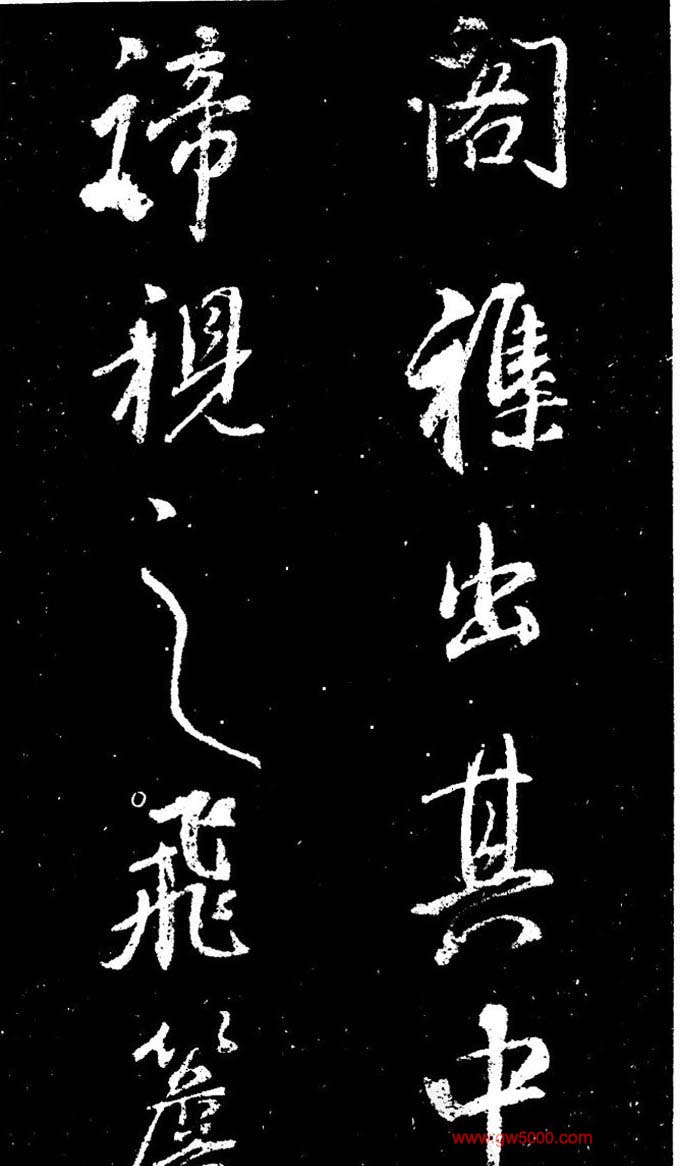 閣襍出其中
諦視之飛簷
www.gw5000.com